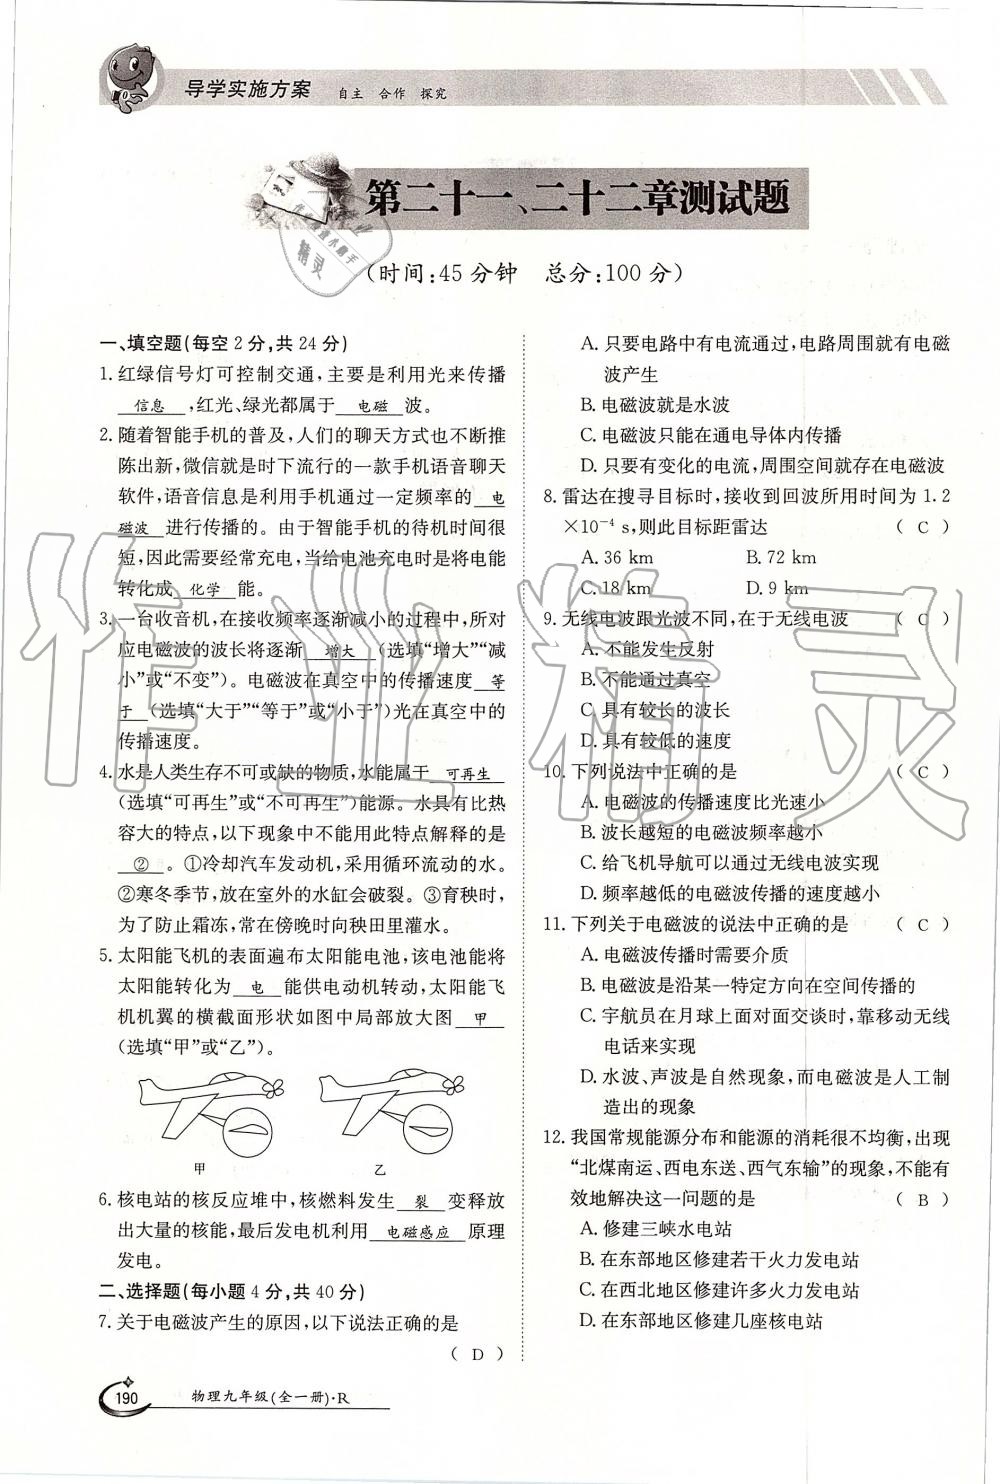 导学实施方案 自主 合作 探究
第二十一、二十二章测试题
(时间:45分钟 总分:100分)
一、填空题(每空2分,共24分)
1. 红绿信号灯可控制交通,主要是利用光来传播
信息,红光、绿光都属于 电磁 波。
2. 随着智能手机的普及,人们的聊天方式也不断推
陈出新,微信就是时下流行的一款手机语音聊天
软件,语音信息是利用手机通过一定频率的 电
磁波 进行传播的。由于智能手机的待机时间很
短,因此需要经常充电,当给电池充电时是将电能
转化成 化学 能。
3. 一台收音机,在接收频率逐渐减小的过程中,所对
应电磁波的波长将逐渐 增大 (选填“增大”“减
小”或“不变”)。电磁波在真空中的传播速度 等
于 (选填“大于”“等于”或“小于”)光在真空中的
传播速度。
4. 水是人类生存不可或缺的物质,水能属于 可再生
(选填“可再生”或“不可再生”)能源。水具有比热
容大的特点,以下现象中不能用此特点解释的是
② 。①冷却汽车发动机,采用循环流动的水。
②寒冬季节,放在室外的水缸会破裂。③育秧时,
为了防止霜冻,常在傍晚时向秧田里灌水。
5. 太阳能飞机的表面遍布太阳能电池,该电池能将
太阳能转化为 电 能供电动机转动,太阳能飞
机机翼的横截面形状如图中局部放大图 甲
(选填“甲”或“乙”)。
甲 乙
6. 核电站的核反应堆中,核燃料发生 裂 变释放
出大量的核能,最后发电机利用 电磁感应 原理
发电。
二、选择题(每小题4分,共40分)
7. 关于电磁波产生的原因,以下说法正确的是
( D )
A. 只要电路中有电流通过,电路周围就有电磁
波产生
B. 电磁波就是水波
C. 电磁波只能在通电导体内传播
D. 只要有变化的电流,周围空间就存在电磁波
8. 雷达在搜寻目标时,接收到回波所用时间为1.2
×10⁻⁴ s,则此目标距雷达 ( C )
A. 36 km B. 72 km
C. 18 km D. 9 km
9. 无线电波跟光波不同,在于无线电波 ( C )
A. 不能发生反射
B. 不能通过真空
C. 具有较长的波长
D. 具有较低的速度
10. 下列说法中正确的是 ( C )
A. 电磁波的传播速度比光速小
B. 波长越短的电磁波频率越小
C. 给飞机导航可以通过无线电波实现
D. 频率越低的电磁波传播的速度越小
11. 下列关于电磁波的说法中正确的是 ( C )
A. 电磁波传播时需要介质
B. 电磁波是沿某一特定方向在空间传播的
C. 宇航员在月球上面对面交谈时,靠移动无线
电话来实现
D. 水波、声波是自然现象,而电磁波是人工制
造出的现象
12. 我国常规能源分布和能源的消耗很不均衡,出现
“北煤南运、西电东送、西气东输”的现象,不能有
效地解决这一问题的是 ( B )
A. 修建三峡水电站
B. 在东部地区修建若干火力发电站
C. 在西北地区修建许多火力发电站
D. 在东部地区修建几座核电站
190 物理九年级(全一册)·R
作业精灵